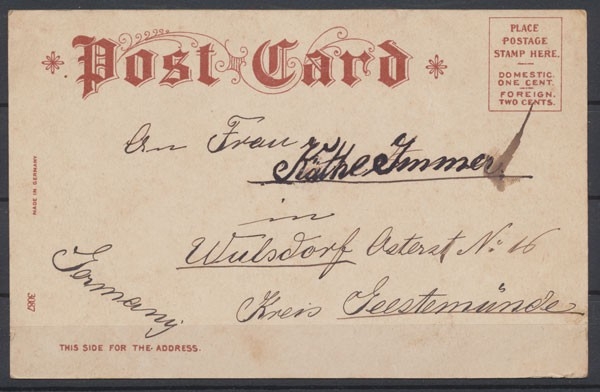 Post Card
PLACE
POSTAGE
STAMP HERE.
DOMESTIC.
ONE CENT.
FOREIGN.
TWO CENTS.
An Frau
Käthe Immer
in
Wulsdorf Osterst No 16
Kreis Geestemünde
Germany
MADE IN GERMANY
3087
THIS SIDE FOR THE ADDRESS.